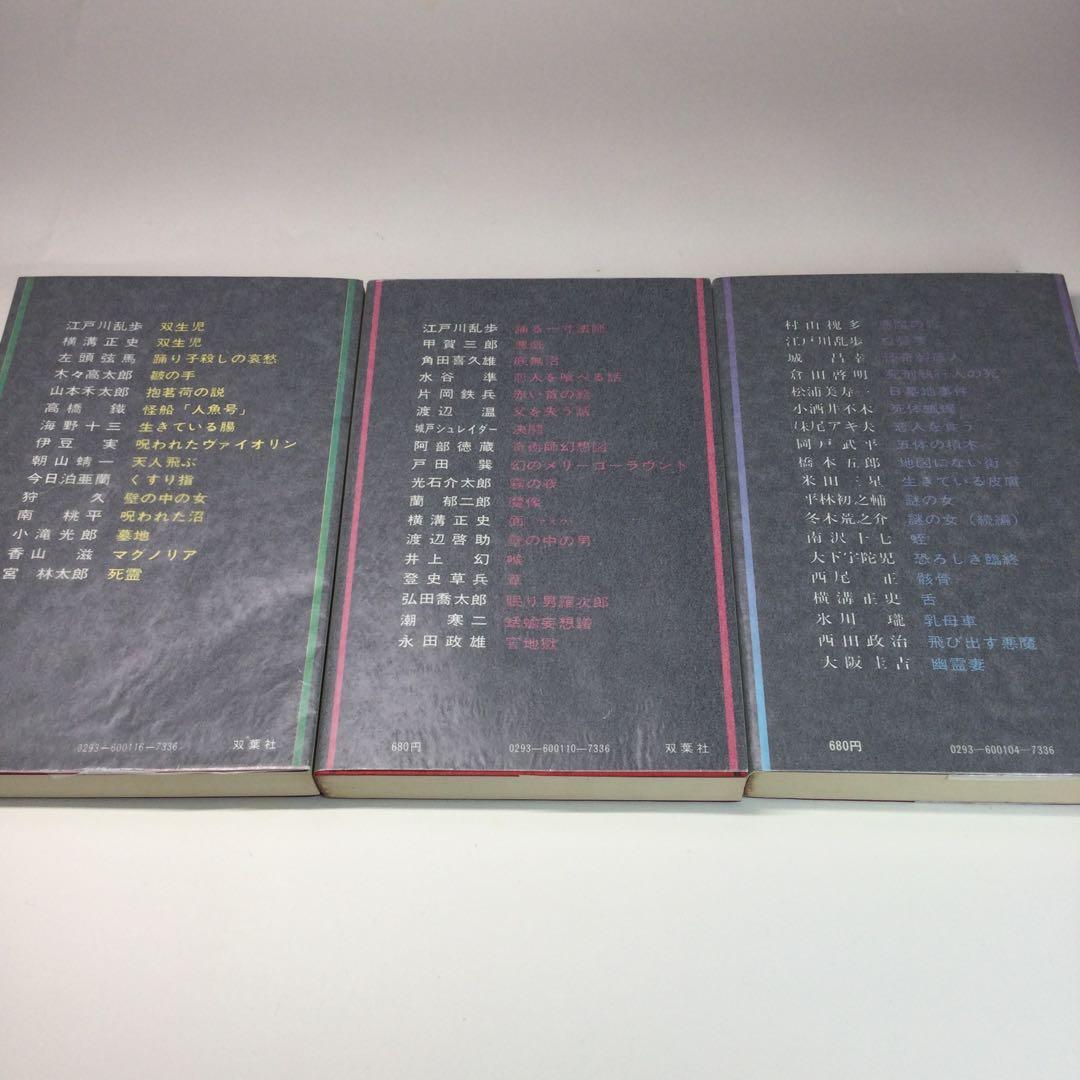 江戸川乱歩 双生児
横溝正史 双生児
左頭弦馬 踊り子殺しの哀愁
木々高太郎 皺の手
山本禾太郎 抱茗荷の説
高橋鐵 怪船「人魚号」
海野十三 生きている腸
伊豆実 呪われたヴァイオリン
朝山蜻一 天人飛ぶ
今日泊亜蘭 くすり指
狩久 壁の中の女
南桃平 呪われた沼
小滝光郎 墓地
香山滋 マグノリア
宮林太郎 死霊
0293-600116-7336 双葉社
江戸川乱歩 踊る一寸法師
甲賀三郎 悪戯
角田喜久雄 底無沼
水谷準 恋人を喰べる話
片岡鉄兵 赤い首の絵
渡辺温 父を失う話
城戸シュレイダー 決闘
阿部徳蔵 奇術師幻想図
戸田巽 幻のメリーゴーラウンド
光石介太郎 霧の夜
蘭郁二郎 魔像
横溝正史 面
渡辺啓助 壁の中の男
井上幻 喉
登史草兵 蟬
弘田喬太郎 眠り男羅次郎
潮寒二 蛞蝓妄想譜
永田政雄 人地獄
680円 0293-600110-7336 双葉社
村山槐多
江戸川乱歩
城昌幸
倉田啓明 死刑執行人の死
松浦美寿一 B墓地事件
小酒井不木 死体蝋燭
妹尾アキ夫 恋人を食う
岡戸武平 五体の積木
橋本五郎 地図にない街
米田三星 生きている皮膚
平林初之輔 謎の女
冬木荒之介 謎の女(続編)
南沢十七 蛭
大下宇陀児 恐ろしき臨終
西尾正 骸骨
横溝正史 舌
氷川瓏 乳母車
西田政治 飛び出す悪魔
大阪圭吉 幽霊妻
680円 0293-600104-7336